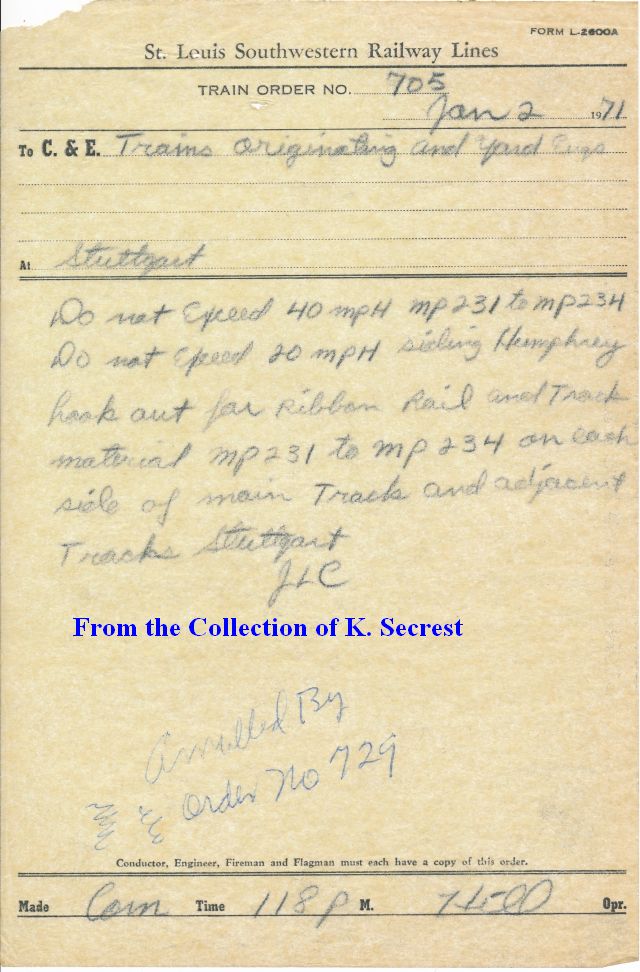 FORM L-2600A
St. Louis Southwestern Railway Lines
TRAIN ORDER NO. 705
Jan 2 1971
To C. & E. Trains originating and Yard Engs
At Stuttgart
Do not Exceed 40 mpH mp 231 to mp 234
Do not Exceed 20 mpH siding Humphrey
Look out for Ribbon Rail and Track
material mp 231 to mp 234 on each
side of main Track and adjacent
Tracks Stuttgart
JLC
From the Collection of K. Secrest
Annulled By
Order No 729
Conductor, Engineer, Fireman and Flagman must each have a copy of this order.
Made Com Time 118 P M. Opr.